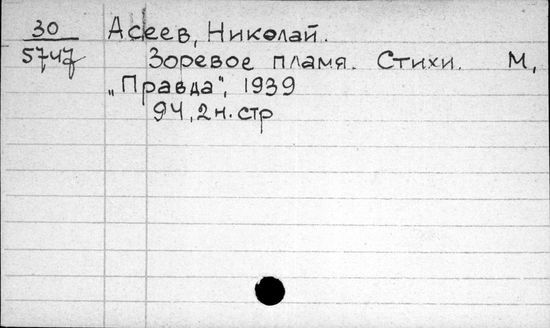 30 Асеев, Николай.
5747 Зоревое пламя. Стихи. М,
„Правда", 1939
94, 2 н. стр